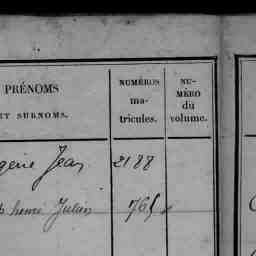 PRÉNOMS
ET SURNOMS.
NUMÉROS
ma-
tricules.
NU-
MÉRO
du
volume.
Jean 2188
henri Julien 765